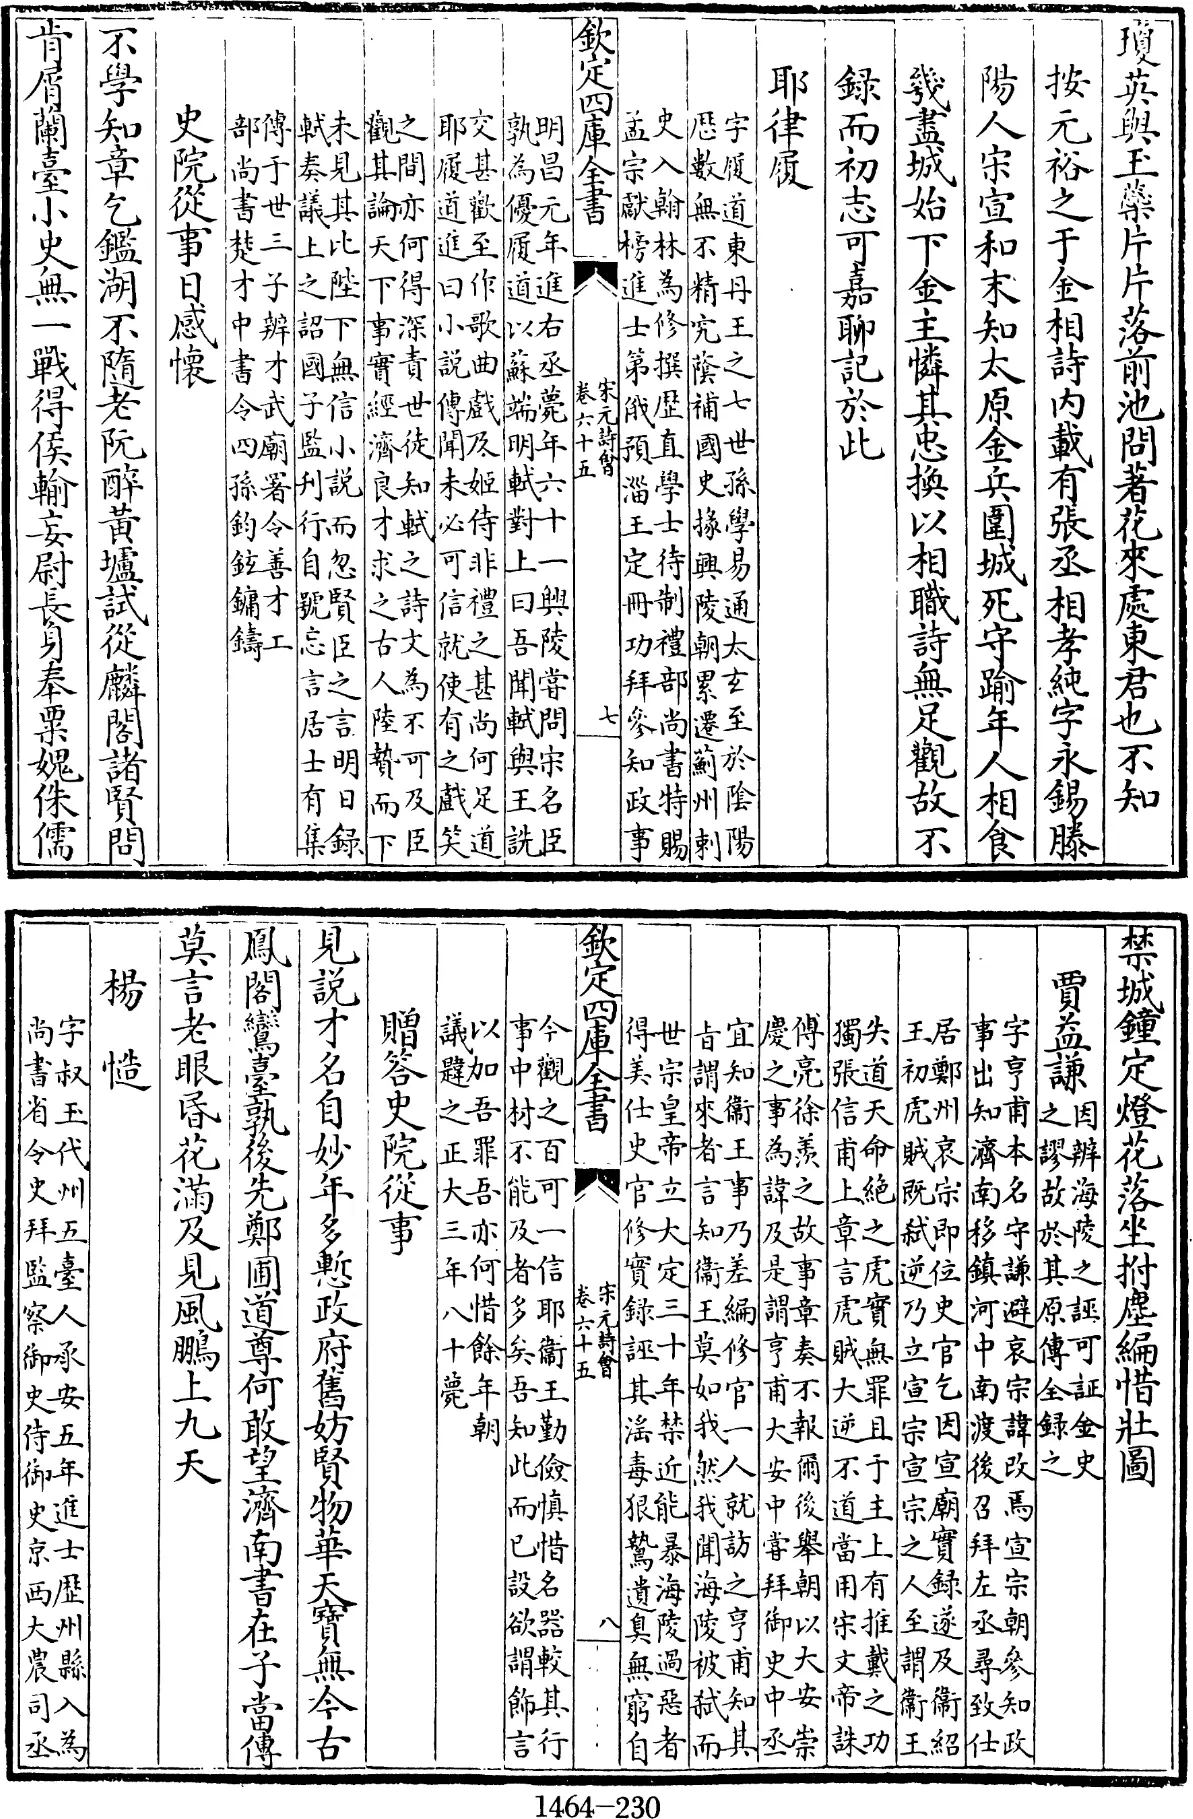 瓊英與玉蘂片片落前池問著花來處東君也不知
按元裕之于金相詩内載有張丞相孝純字永錫滕
陽人宋宣和末知太原金兵圍城死守踰年人相食
㡬盡城始下金主憐其忠換以相職詩無足觀故不
録而初志可嘉聊記於此
耶律履
字履道東丹王之七世孫學易通太玄至於陰陽
厯數無不精究蔭補國史掾興陵朝累遷薊州剌
史入翰林為修撰歴直學士待制禮部尚書特賜
孟宗獻榜進士第俄預淄王定冊功拜參知政事
欽定四庫全書
宋元詩會
卷六十五
七
明昌元年進右丞薨年六十一興陵嘗問宋名臣
孰為優履道以蘇端明軾對上曰吾聞軾與王詵
交甚歡至作歌曲戲及姬侍非禮之甚尚何足道
耶履道進曰小説傳聞未必可信就使有之戲笑
之間亦何得深責世徒知軾之詩文為不可及臣
觀其論天下事實經濟良才求之古人陸贄而下
未見其比陛下無信小説而忽賢臣之言明日録
軾奏議上之詔國子監刋行自號忘言居士有集
傳于世三子辨才武廟署令善才工
部尚書楚才中書令四孫鈞鉉鏞鑄
史院從事日感懷
不學知章乞鑑湖不隨老阮醉黄壚試從麟閣諸賢問
肯屑蘭臺小史無一戰得侯輸妄尉長身奉粟媿侏儒
禁城鐘定燈花落坐拊塵編惜壯圖
賈益謙
因辨海陵之誣可証金史
之謬故於其原傳全録之
字亨甫本名守謙避哀宗諱改焉宣宗朝參知政
事出知濟南移鎮河中南渡後召拜左丞尋致仕
居鄭州哀宗即位史官乞因宣廟實録遂及衞紹
王初虎賊既弑逆乃立宣宗宣宗之人至謂衞王
失道天命絶之虎實無罪且于主上有推戴之功
獨張信甫上章言虎賊大逆不道當用宋文帝誅
傅亮徐羨之故事章奏不報爾後舉朝以大安崇
慶之事為諱及是謂亨甫大安中嘗拜御史中丞
宜知衞王事乃差編修官一人就訪之亨甫知其
㫖謂來者言知衞王莫如我然我聞海陵被弑而
世宗皇帝立大定三十年禁近能暴海陵過惡者
得美仕史官修實録誣其滛毒狠驁遺臭無窮自
欽定四庫全書
宋元詩會
卷六十五
八
今觀之百可一信耶衞王勤儉慎惜名器較其行
事中材不能及者多矣吾知此而已設欲謂飾言
以加吾罪吾亦何惜餘年朝
議韙之正大三年八十薨
贈答史院從事
見説才名自妙年多慙政府舊妨賢物華天寳無今古
鳳閣鸞臺孰後先鄭圃道尊何敢望濟南書在子當傳
莫言老眼昏花滿及見風鵬上九天
楊慥
字叔玉代州五臺人承安五年進士歴州縣入為
尚書省令史拜監察御史侍御史京西大農司丞
1464-230